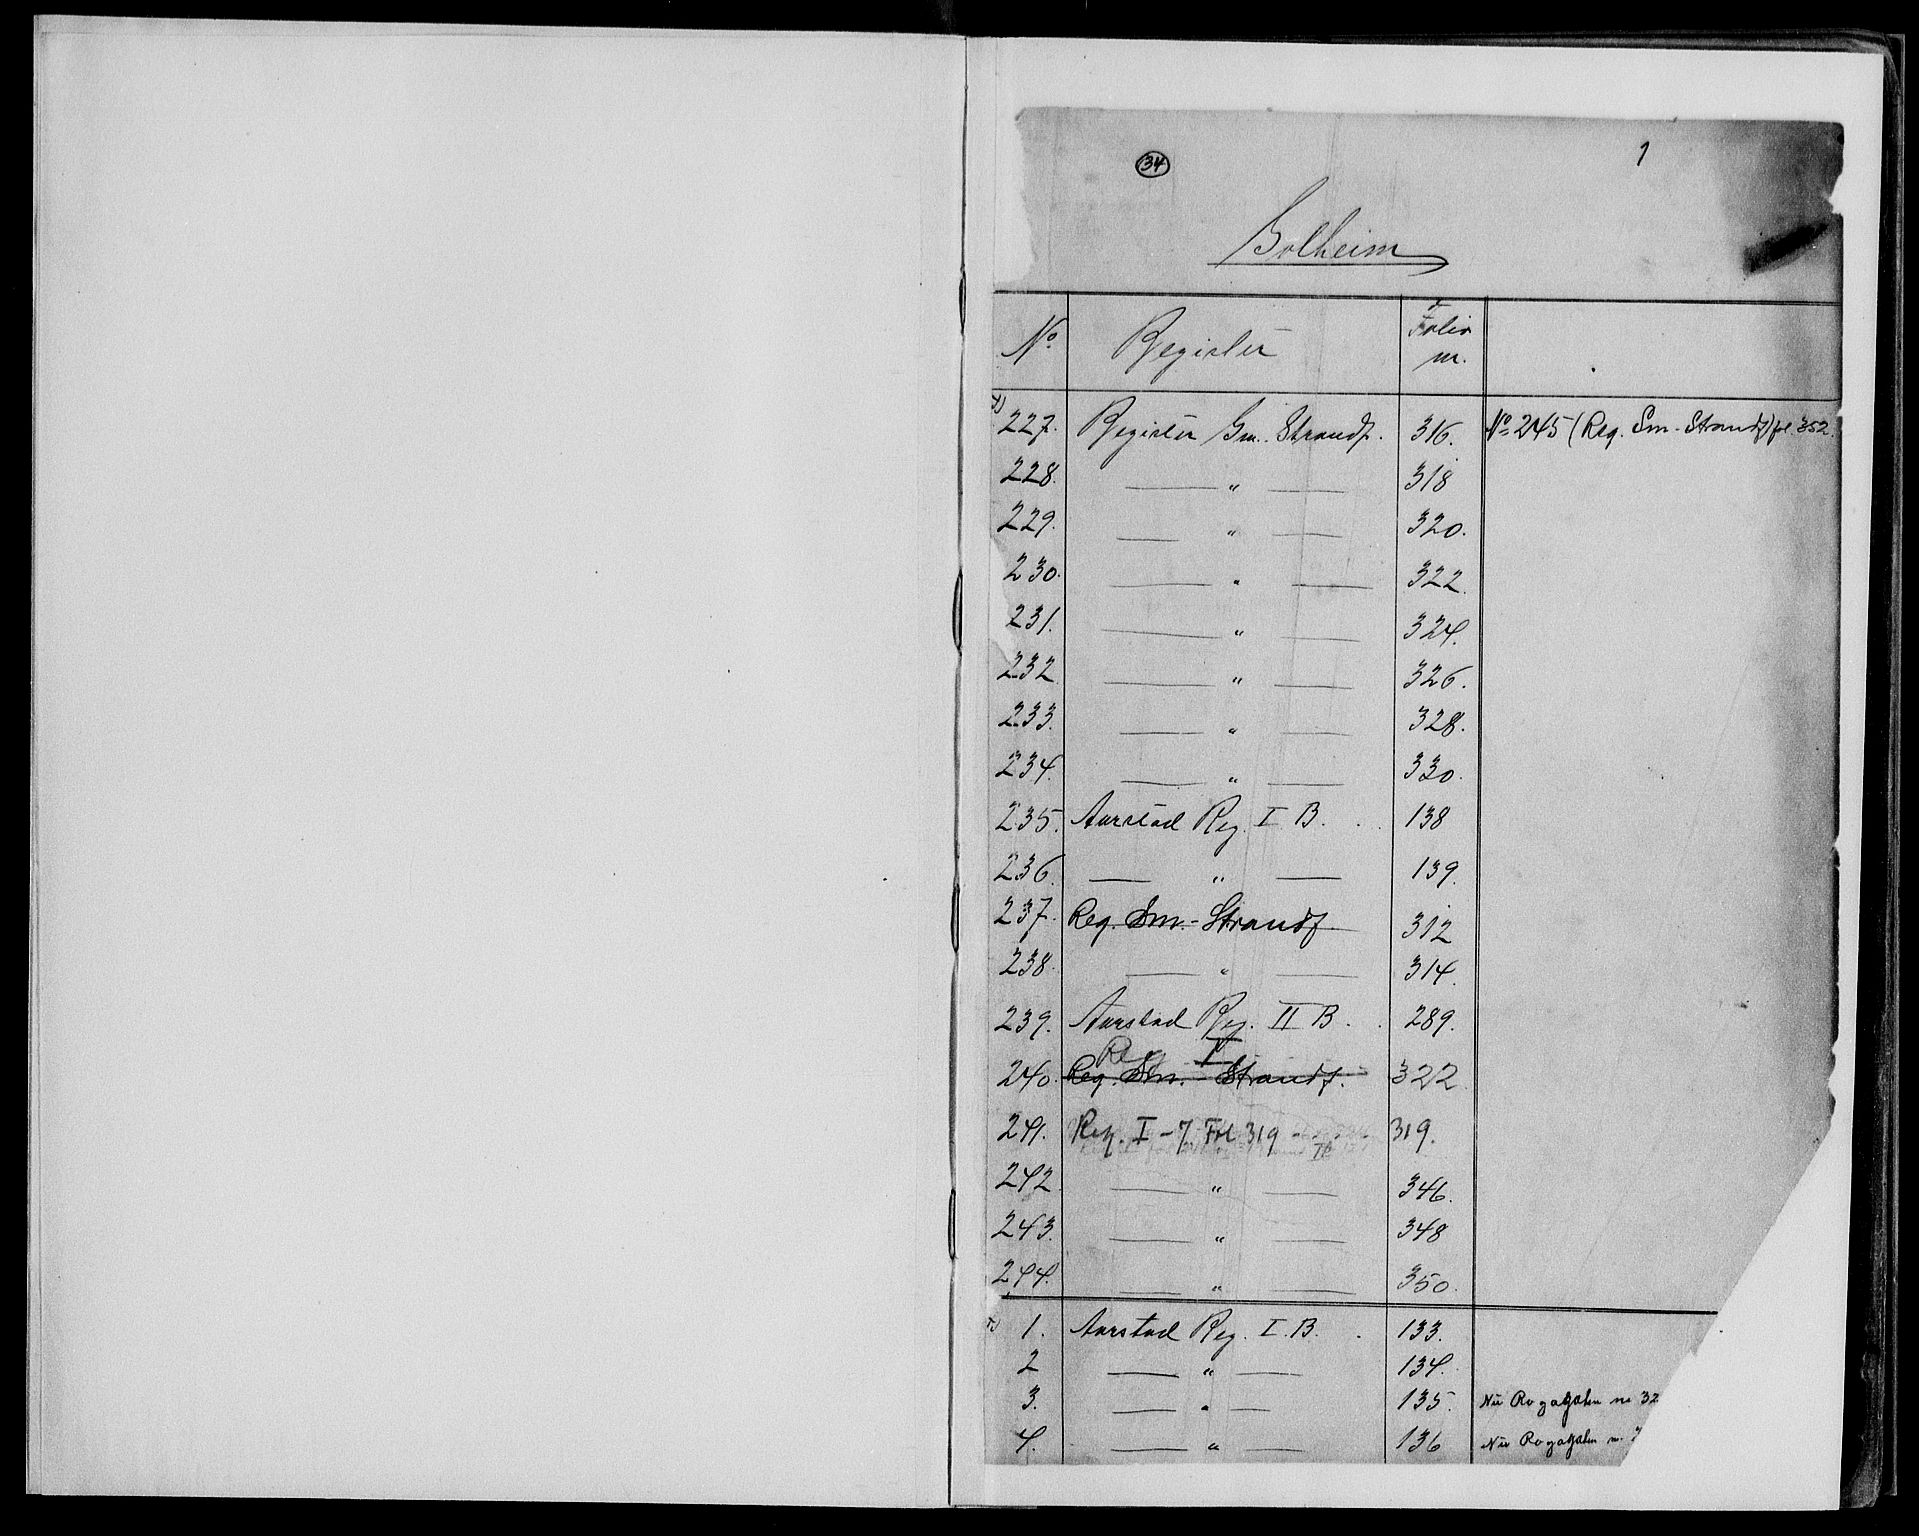 34 1
Solheim
No Register Folio nr.
227. Register Sm. Strandf. 316. No 245 (Reg. Sm - Strandf) fol 352.
228. — " — 318
229. — " — 320.
230. — " — 322.
231. — " — 324.
232 — " — 326.
233. — " — 328.
234. — " — 330.
235. Aarstad Reg. I B. 138
236. — " — 139.
237. Reg. Sm. - Strandf. 312
238. — " — 314.
239. Aarstad Reg. II B. 289.
Re V
240. Reg. Sm. - Strandf. 322
241. Reg. I - 7 Fol 319 319.
242 — " — 346.
243. — " — 348
244. — " — 350.
1. Aarstad Reg. I. B. 133.
2 — " — 134.
3. — " — 135. Nu Rogagaten nr 32
4. — " — 136 Nu Rogagaten nr.